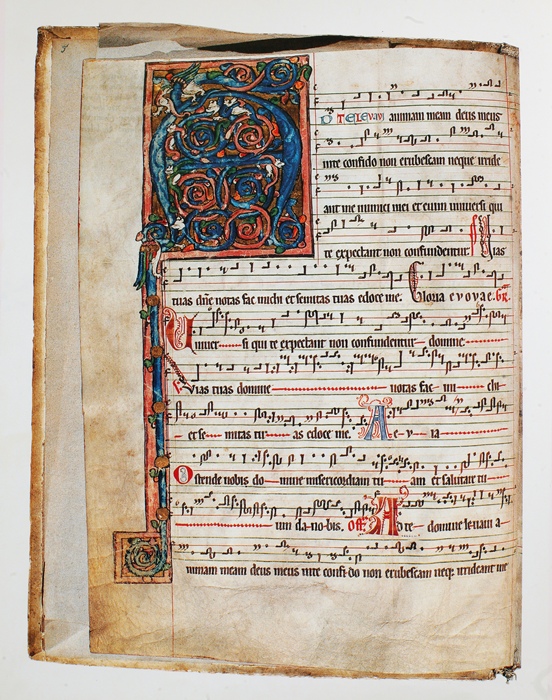 D TE LEVAVI animam meam deus meus
inte confido non erubescam neque irride
ant me inimici mei et enim universi qui
te expectant non confundentur. Vias
tuas dñe notas fac michi et semitas tuas edoce me. Gloria e v o v a e. Gr.
Univer si qui te expectant non confundentur domine
Vias tuas domine notas fac mi chi
et se mitas tu as edoce me. A e v ia
Ostende nobis do mine misericordiam tu am et salutare tu
um da no bis. off. Ad te domine levavi a
nimam meam deus meus inte confi do non erubescam neq; irrideant me